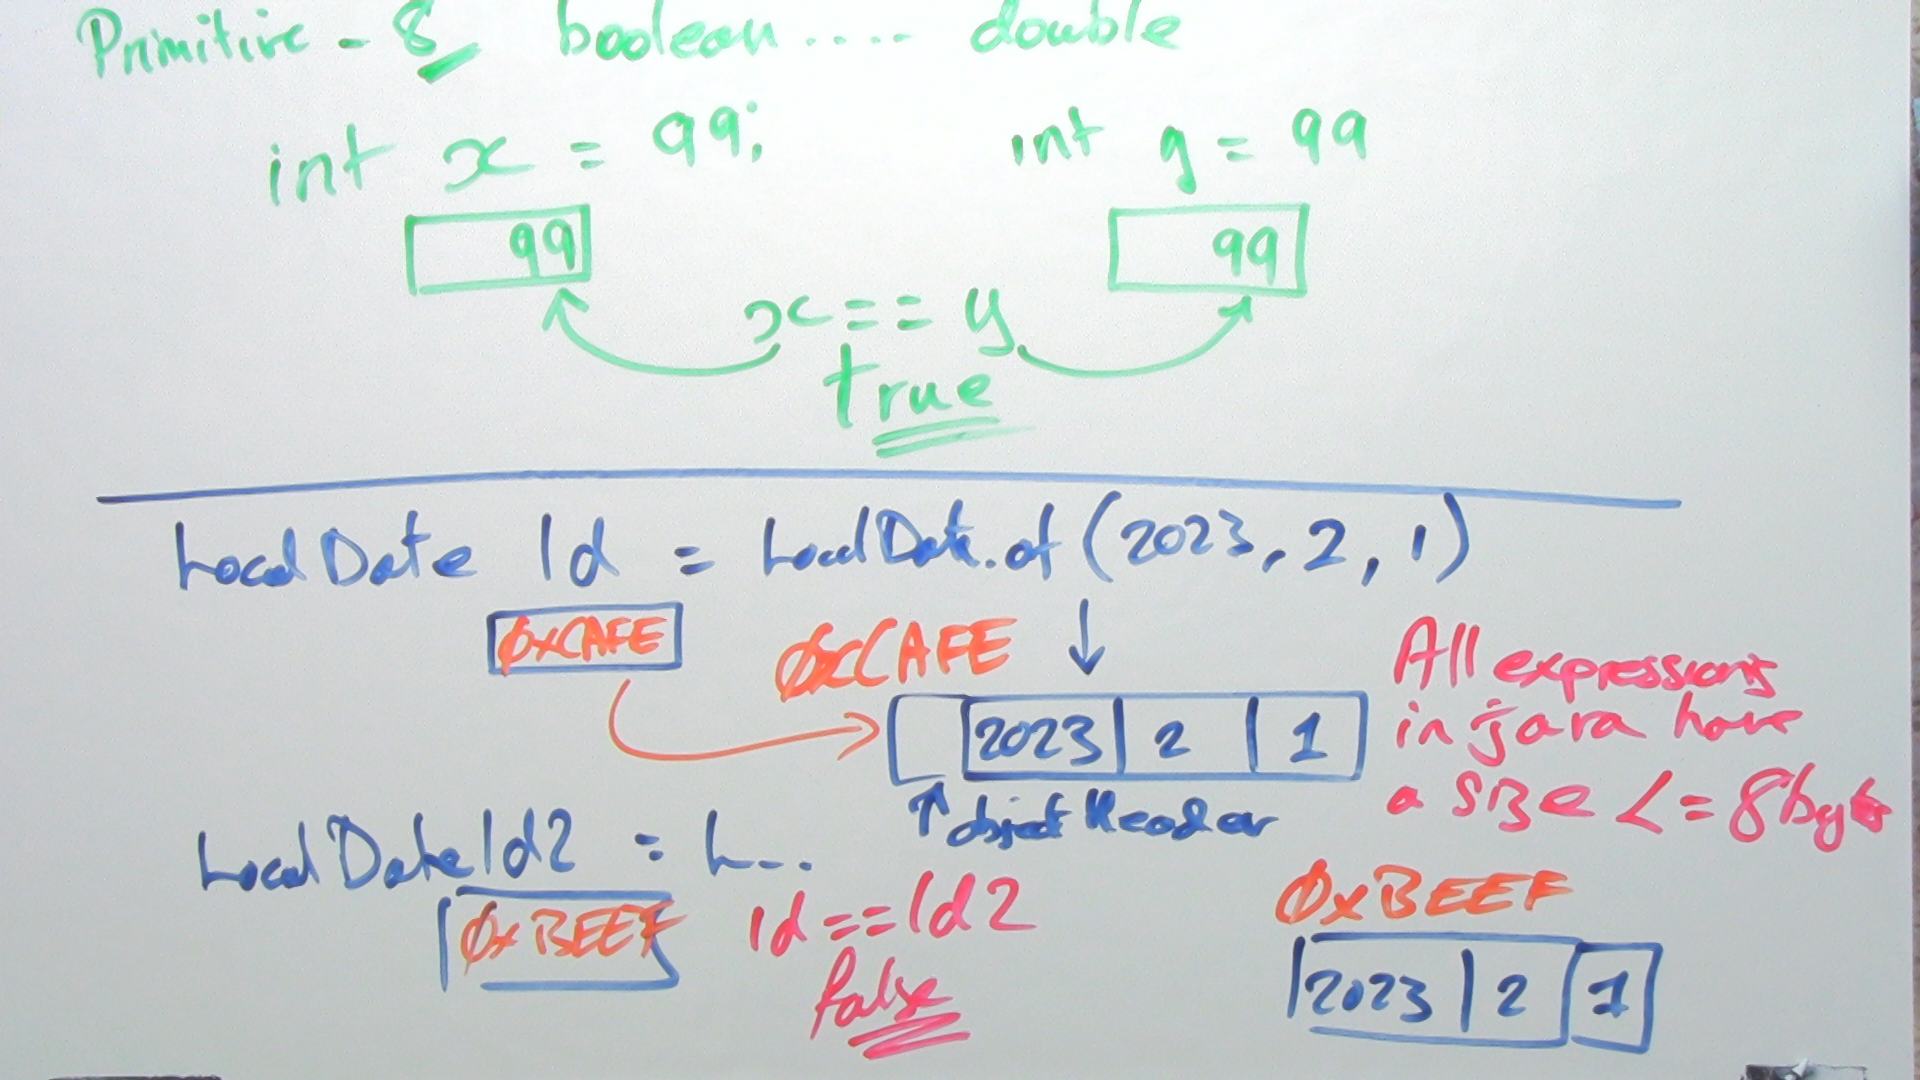 Primitive - 8 boolean.... double
int x = 99; int y = 99
99 99
x == y
true
LocalDate ld = LocalDate.of(2023, 2, 1)
0xCAFE 0xCAFE
2023 2 1
↑ object Header
All expressions
in java have
a size <= 8 bytes
LocalDate ld2 = L...
0xBEEF ld == ld2 0xBEEF
false
2023 2 1